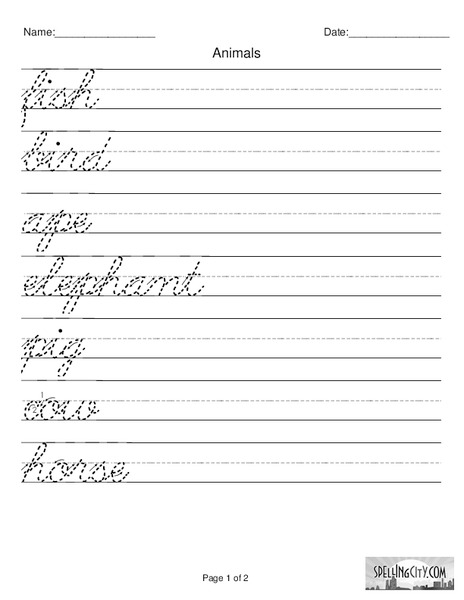 Name:________________ Date:________________
Animals
fish
bird
ape
elephant
pig
cow
horse
Page 1 of 2
SPELLINGCITY.COM